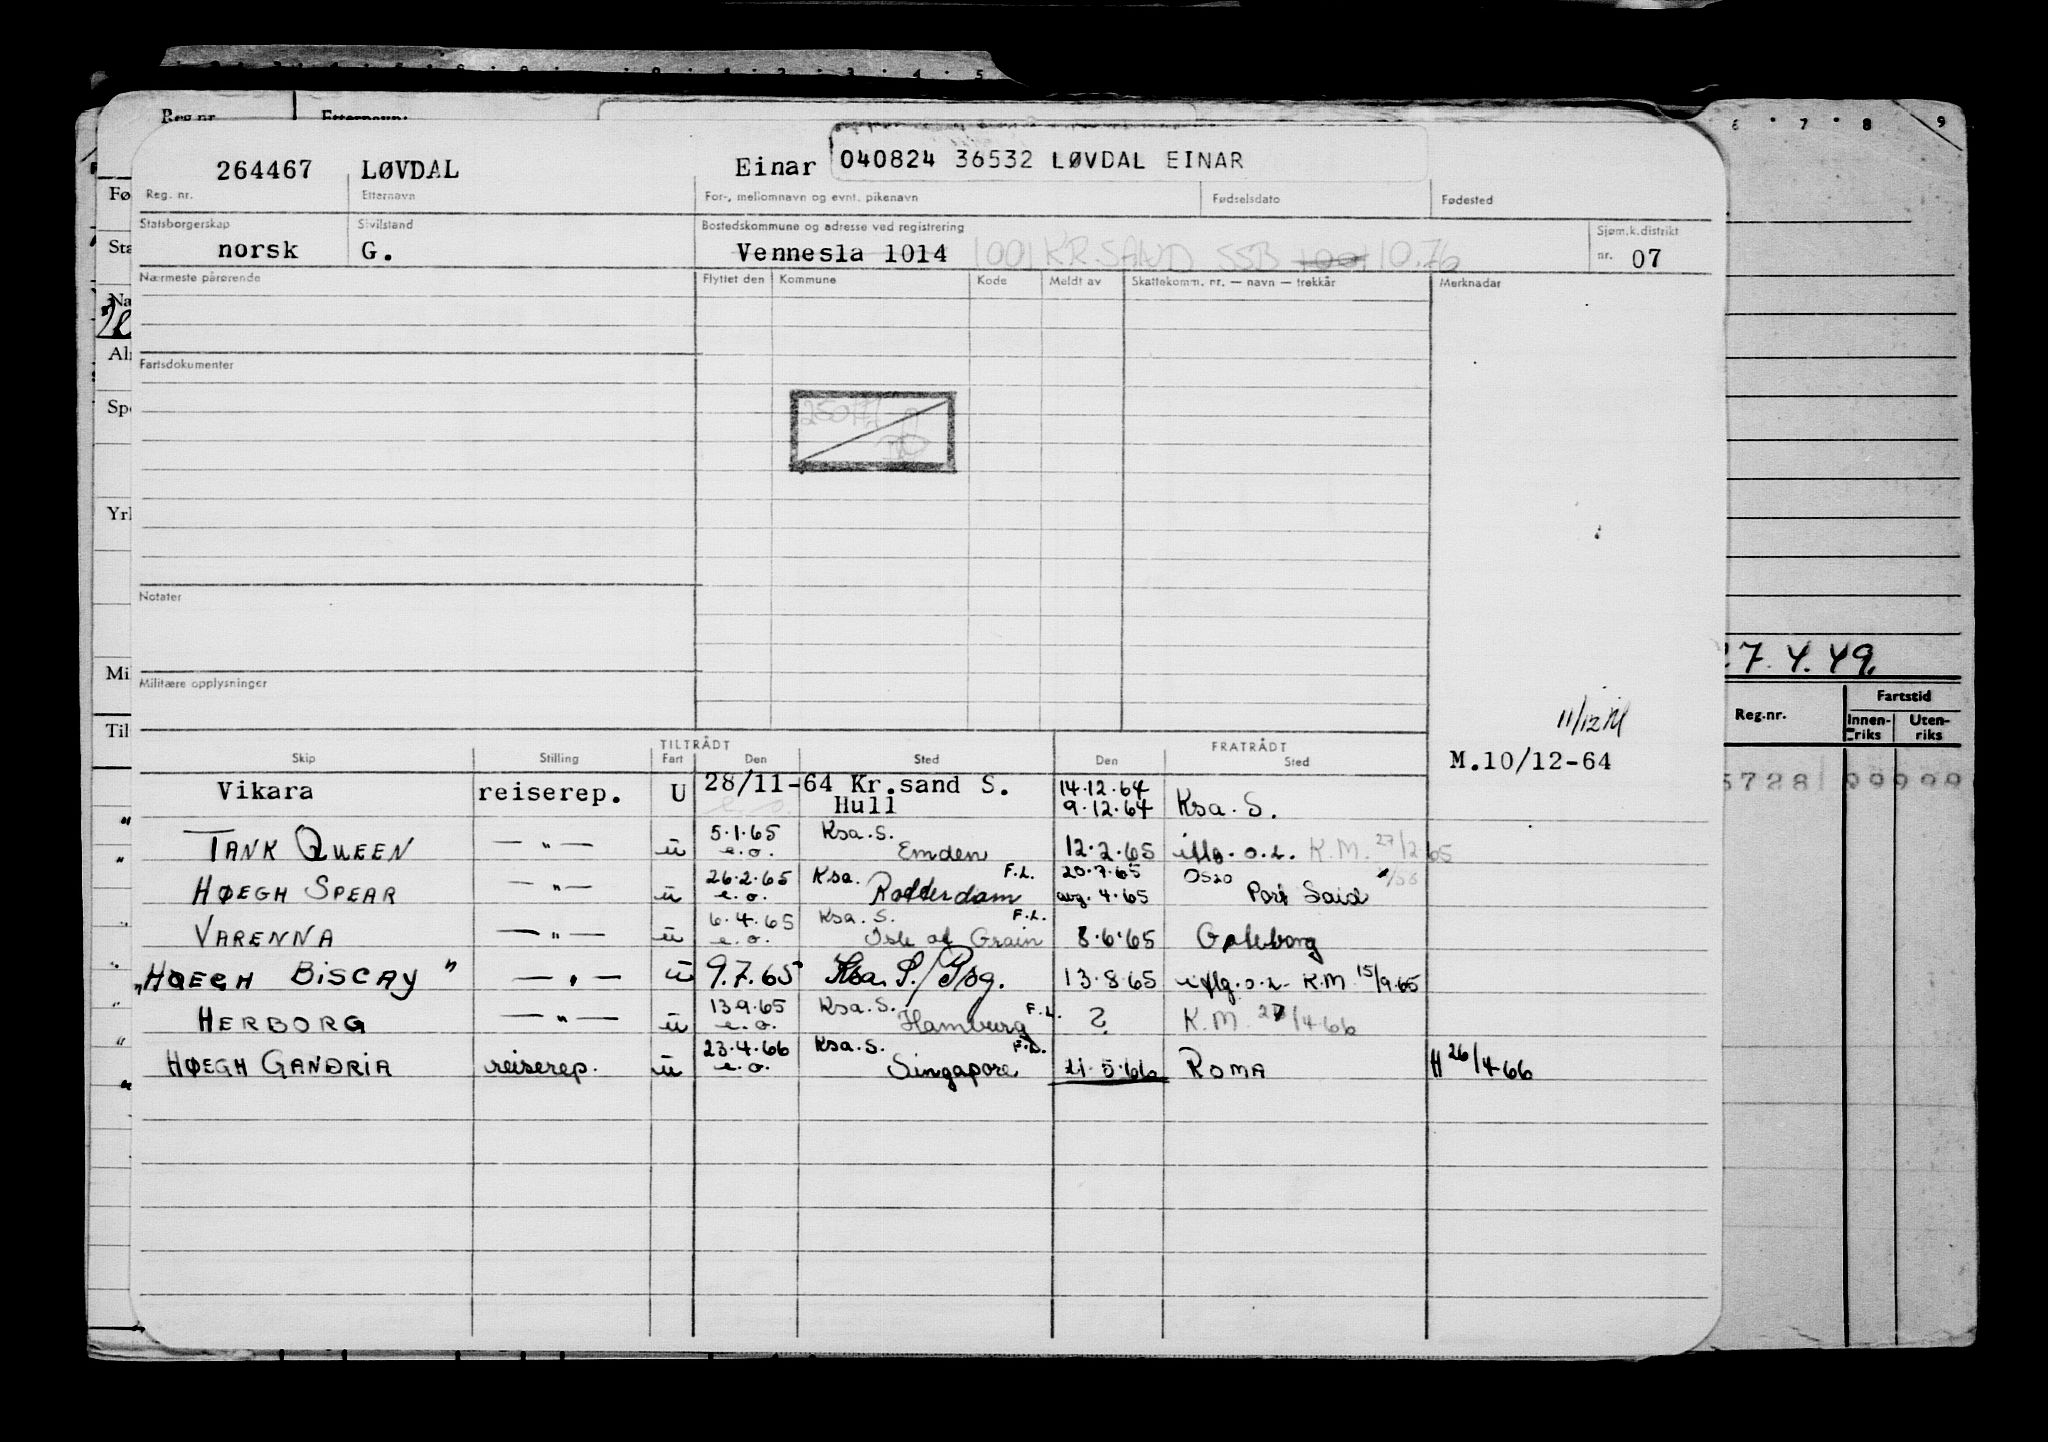 Reg.nr. Etternavn:
6 7 8 9
264467 LØVDAL Einar 040824 36532 LØVDAL EINAR
Reg. nr. Etternavn For-, mellomnavn og evnt. pikenavn Fødselsdato Fødested
Statsborgerskap Sivilstand Bostedskommune og adresse ved registrering Sjøm.k.distrikt
norsk G. Vennesla 1014 1001 KR.SAND SSB 1001 10.76 nr. 07
Nærmeste pårørende Flyttet den Kommune Kode Meldt av Skattekomm. nr. — navn — trekkår Merknader
Fartsdokumenter
Notater
27.4.49.
Militære opplysninger
Reg.nr. Fartstid
Innen-riks Uten-riks
11/12
TILTRÅDT FRATRÅDT
Skip Stilling Fart Den Sted Den Sted M.10/12-64
Vikara reiserep. U 28/11-64 Kr.sand S. 14.12.64
Hull 9.12.64 Ksa. S.
" TANK QUEEN — " — u 5.1.65 Ksa. S.
e.o. Emden 12.2.65 iflg. o.l. K.M. 27/2 65
" HØEGH SPEAR — " — u 26.2.65 Ksa. F.L. 20.7.65 Oslo
e.o. Rotterdam avg. 4.65 Port Said
" VARENNA — " — u 6.4.65 Ksa. S. F.L.
e.o. Isle of Grain 8.6.65 Gøteborg
"HØEGH BISCAY" — " — u 9.7.65 Ksa. S./Psg. 13.8.65 iflg. o.l. K.M. 15/9.65
HERBORG — " — u 13.9.65 Ksa. S. F.L.
e.o. Hamburg ? K.M. 27/4 66
" HØEGH GANDRIA reiserep. u 23.4.66 Ksa. S. F.L.
e.o. Singapore 21.5.66 ROMA H 26/4 66